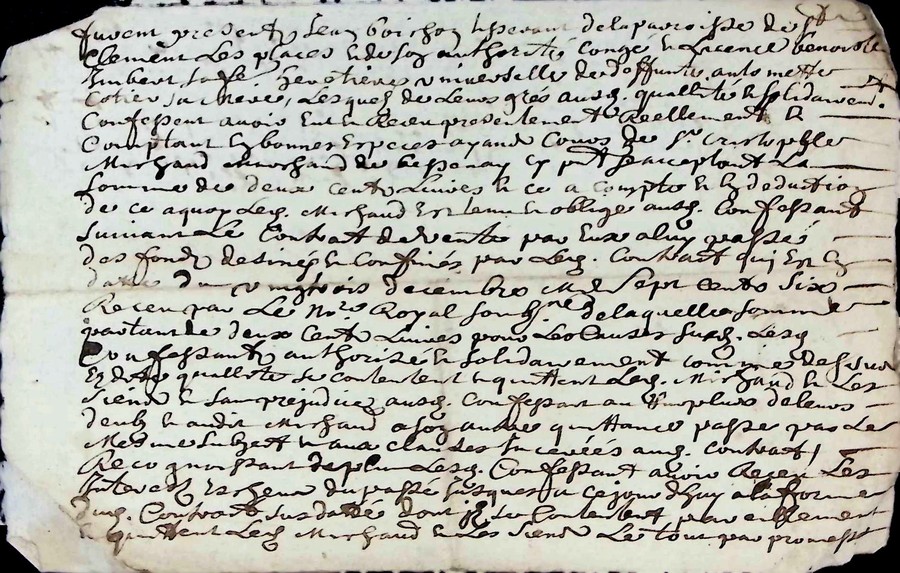 furent presents Jean boichon tisserant de la parroisse de St
Clement Les places & de soy authorité Congé & Licence benoiste
Imbert sa fe heretiere universelle de deffuncte antoinette
Cotier sa Mere, Lesquels de Leurs grés ausd. quallité & solidairem.
Confessent avoir Eu & Receu presentement Reellement &
Comptant En bonnes Especes ayant Cours de sr. Christophle
Michaud Marchand de bessenay Cy pnt & acceptant La
somme de deux cents Livres & ce a compte & En deduction
de ce a quoy Led. Michaud Est tenu & obligé ausd. Confessant
suivant Le Contrat de vente par Eux a luy passé
des fonds desinés & Confinés par Led. Contract qui Est En
datte du vingtrois decembre Mil Sept Cents Six
Receu par Le Nore. Royal soubsne. de laquelle somme
partant de deux Cents Livres pour Les Causes susd. Lesd.
Confessants authorisé & solidairement comme dessus
Esdites quallité se contentent & quittent Led. Michaud & Les
siens & sans prejudice ausd. Confessant au surplus de leurs
deub & audit Michaud a son autre quittance passé par Le
Mesme subject & aux clauses Inserées aud. Contract,
Recognoissant de plus Lesd. Confessant avoir Receu Les
Interest Escheux du passé jusques a ce jourd'huy a la forme
dud. Contract susdatté dont ils se Contentent pareillement
& quittent Led. Michaud & Les Siens Le tout par promesse